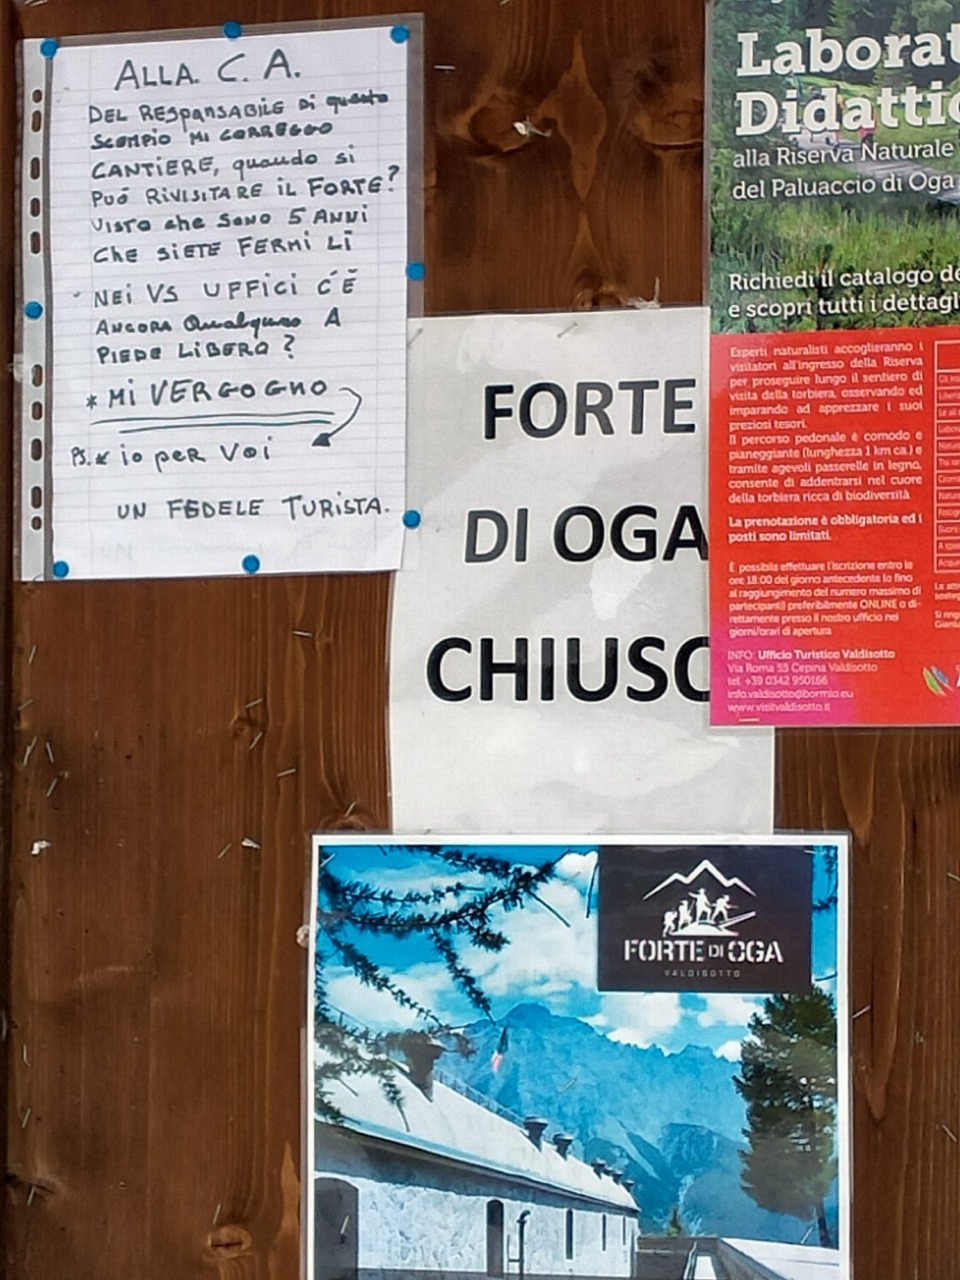 ALLA. C. A.
DEL RESPONSABILE Di questo
SCEMPIO MI CORREGGO
CANTIERE, quando si
PUÓ RIVISITARE iL FORTE?
VISTO che SONO 5 ANNI
CHE SIETE FERMI LÌ
NEI VS UFFICI C'È
ANCORA Qualcuno A
PIEDE LIBERO?
* MI VERGOGNO
PS. io per Voi
UN FEDELE TURISTA.
FORTE
DI OGA
CHIUSO
Laborat
Didattic
alla Riserva Naturale
del Paluaccio di Oga
Richiedi il catalogo de
e scopri tutti i dettagl
Esperti naturalisti accoglieranno i
visitatori all'ingresso della Riserva
per proseguire lungo il sentiero di
visita della torbiera, osservando ed
imparando ad apprezzare i suoi
preziosi tesori.
Il percorso pedonale è comodo e
pianeggiante (lunghezza 1 km ca.) e
tramite agevoli passerelle in legno,
consente di addentrarsi nel cuore
della torbiera ricca di biodiversità
La prenotazione è obbligatoria ed i
posti sono limitati.
È possibile effettuare l'iscrizione entro le
ore 18:00 del giorno antecedente (o fino
al raggiungimento del numero massimo di
partecipanti) preferibilmente ONLINE o di-
rettamente presso il nostro ufficio nei
giorni/orari di apertura
INFO: Ufficio Turistico Valdisotto
Via Roma 55 Cepina Valdisotto
tel. +39 0342 950166
info.valdisotto@bormio.eu
www.visitvaldisotto.it
FORTE DI OGA
VALDISOTTO